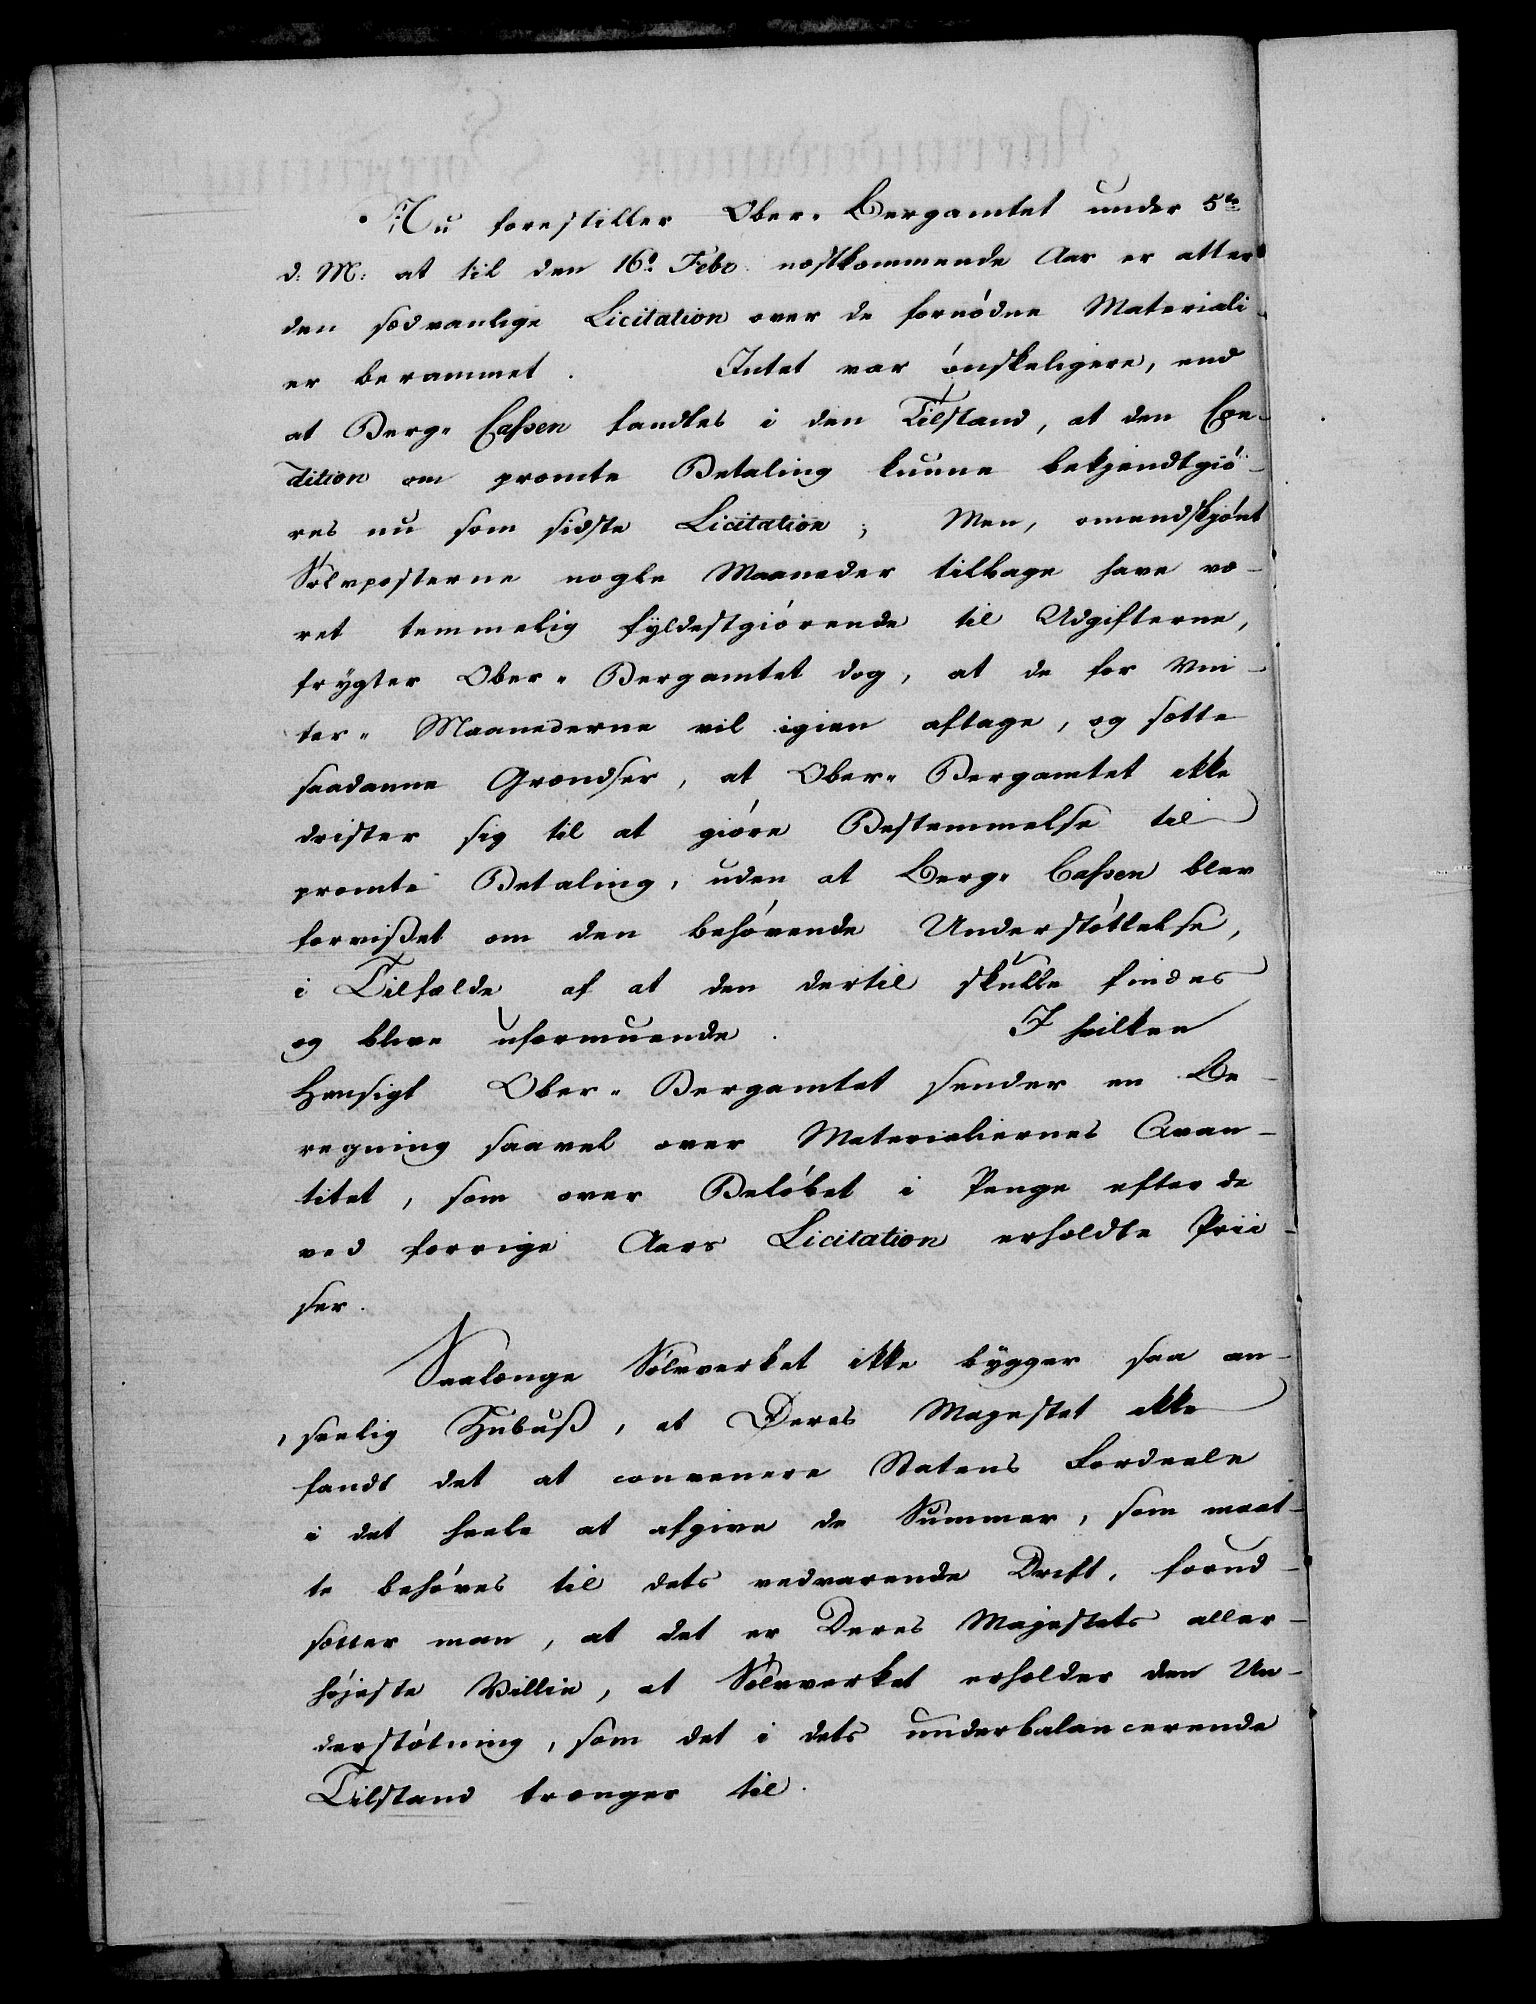 Nu forestiller Ober- Bergamtet under 5te
d: M: at til den 16de Febr. næstkommende Aar er atter
den sædvanlige Licitation over de fornødne Materiali-
er berammet. Intet var ønskeligere, end
at Berg- Cassen fandtes i den Tilstand, at den Con-
dition om promte Betaling kunne bekjendtgiø-
res nu som sidste Licitation; Men, omendskjønt
Sølvposterne nogle Maaneder tilbage have væ-
ret temmelig fyldestgiørende til Udgifterne,
frygter Ober- Bergamtet dog, at de for Vin-
ter- Maanederne vil igien aftage, og sætte
saadanne Grændser, at Ober- Bergamtet ikke
drister sig til at giøre Bestemmelse til
promte Betaling, uden at Berg- Cassen blev
forvißet om den behøvende Understøttelse,
i Tilfælde af at den dertil skulle findes
og blive uformuende. I hvilken
Hensigt Ober- Bergamtet sender en Be-
regning saavel over Materialiernes Qvan-
titet, som over Beløbet i Penge efter de
ved forrige Aars Licitation erholdte Prii-
ser.
Saalænge Sølvverket ikke bygger saa an-
seelig Zubuß, at Deres Majestet ikke
fandt det at convenere Statens Fordeele
i det heele at afgive de Summer, som maat-
te behøves til dets vedvarende Drift, forud-
sætter man, at det er Deres Majestets aller-
højeste Villie, at Sølvverket erholder den Un-
derstøtning, som det i dets underbalancerende
Tilstand trænger til.